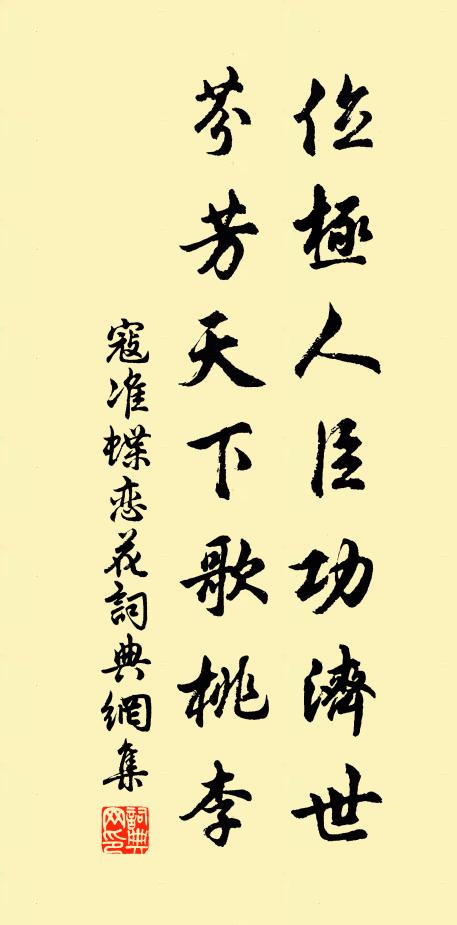 位極人臣功濟世
芬芳天下歌桃李
寇准蝶恋花詞典網集
詞典網印